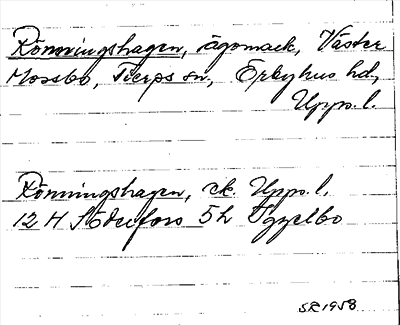 Rönningshagen, ägomark, Väster
Mossbo, Tierps sn, Örbyhus hd,
Upps. l.
Rönningshagen, ek. Upps. l.
12 H Söderfors 5h Iggelbo
SR 1958